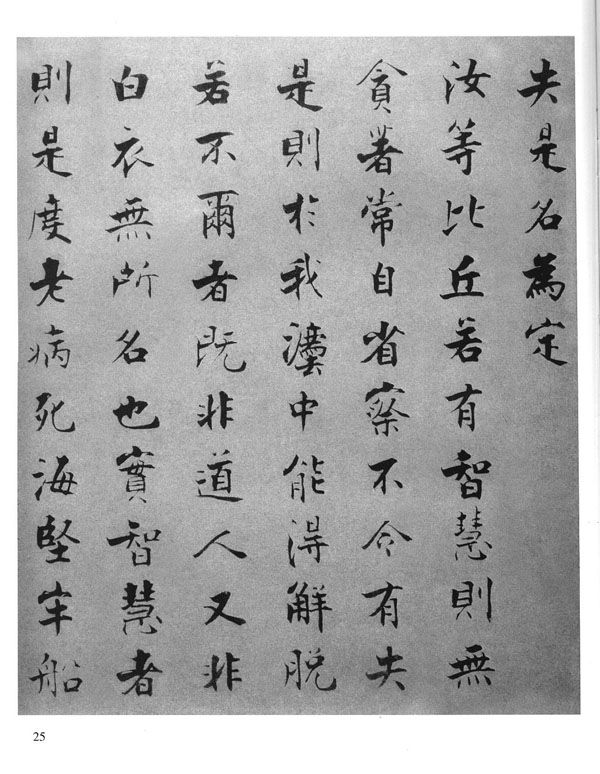 失是名為定
汝等比丘若有智慧則無
貪著常自省察不令有失
是則於我灋中能得解脫
若不爾者既非道人又非
白衣無所名也實智慧者
則是度老病死海堅牢船
25